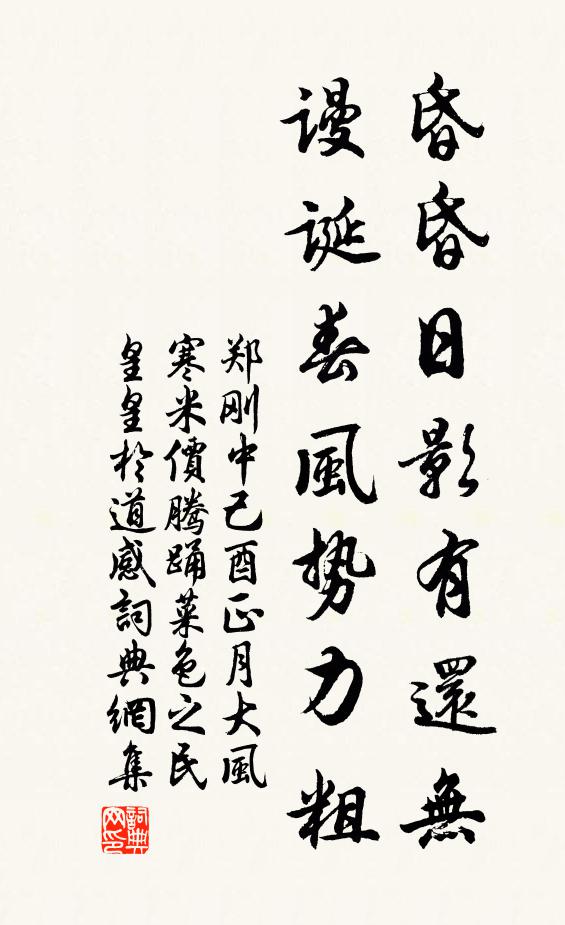 昏昏日影有還無
謾誕春風勢力粗
郑刚中己酉正月大風
寒米價騰踊菜色之民
皇皇於道感詞典網集
詞典
网印